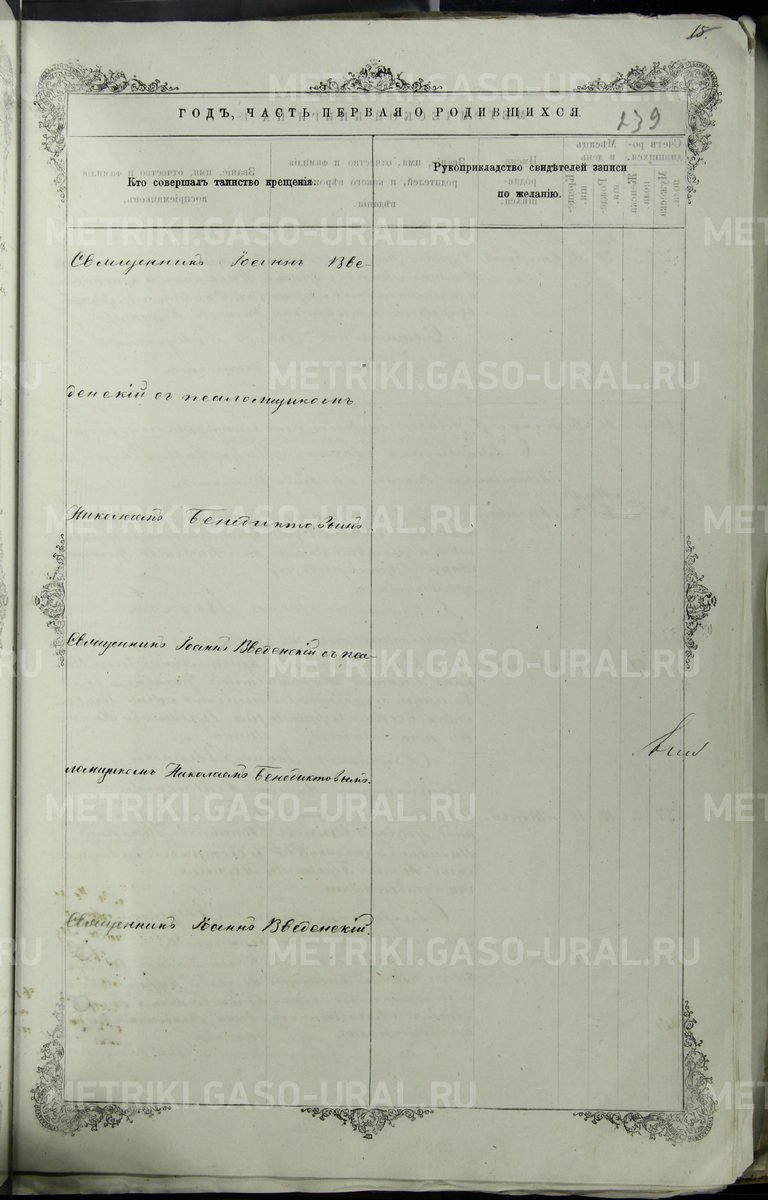 15.
ГОДЪ, ЧАСТЬ ПЕРВАЯ О РОДИВШИХСЯ.
239
Кто совершалъ таинство крещенія.
Рукоприкладство свидѣтелей записи
по желанію.
Священникъ Іоаннъ Вве-
денскій съ псаломщикомъ
Николаемъ Бенедиктовымъ
Священникъ Іоаннъ Введенскій съ пса-
ломщикомъ Николаемъ Бенедиктовымъ.
Священникъ Іоаннъ Введенскій.
METRIKI.GASO-URAL.RU